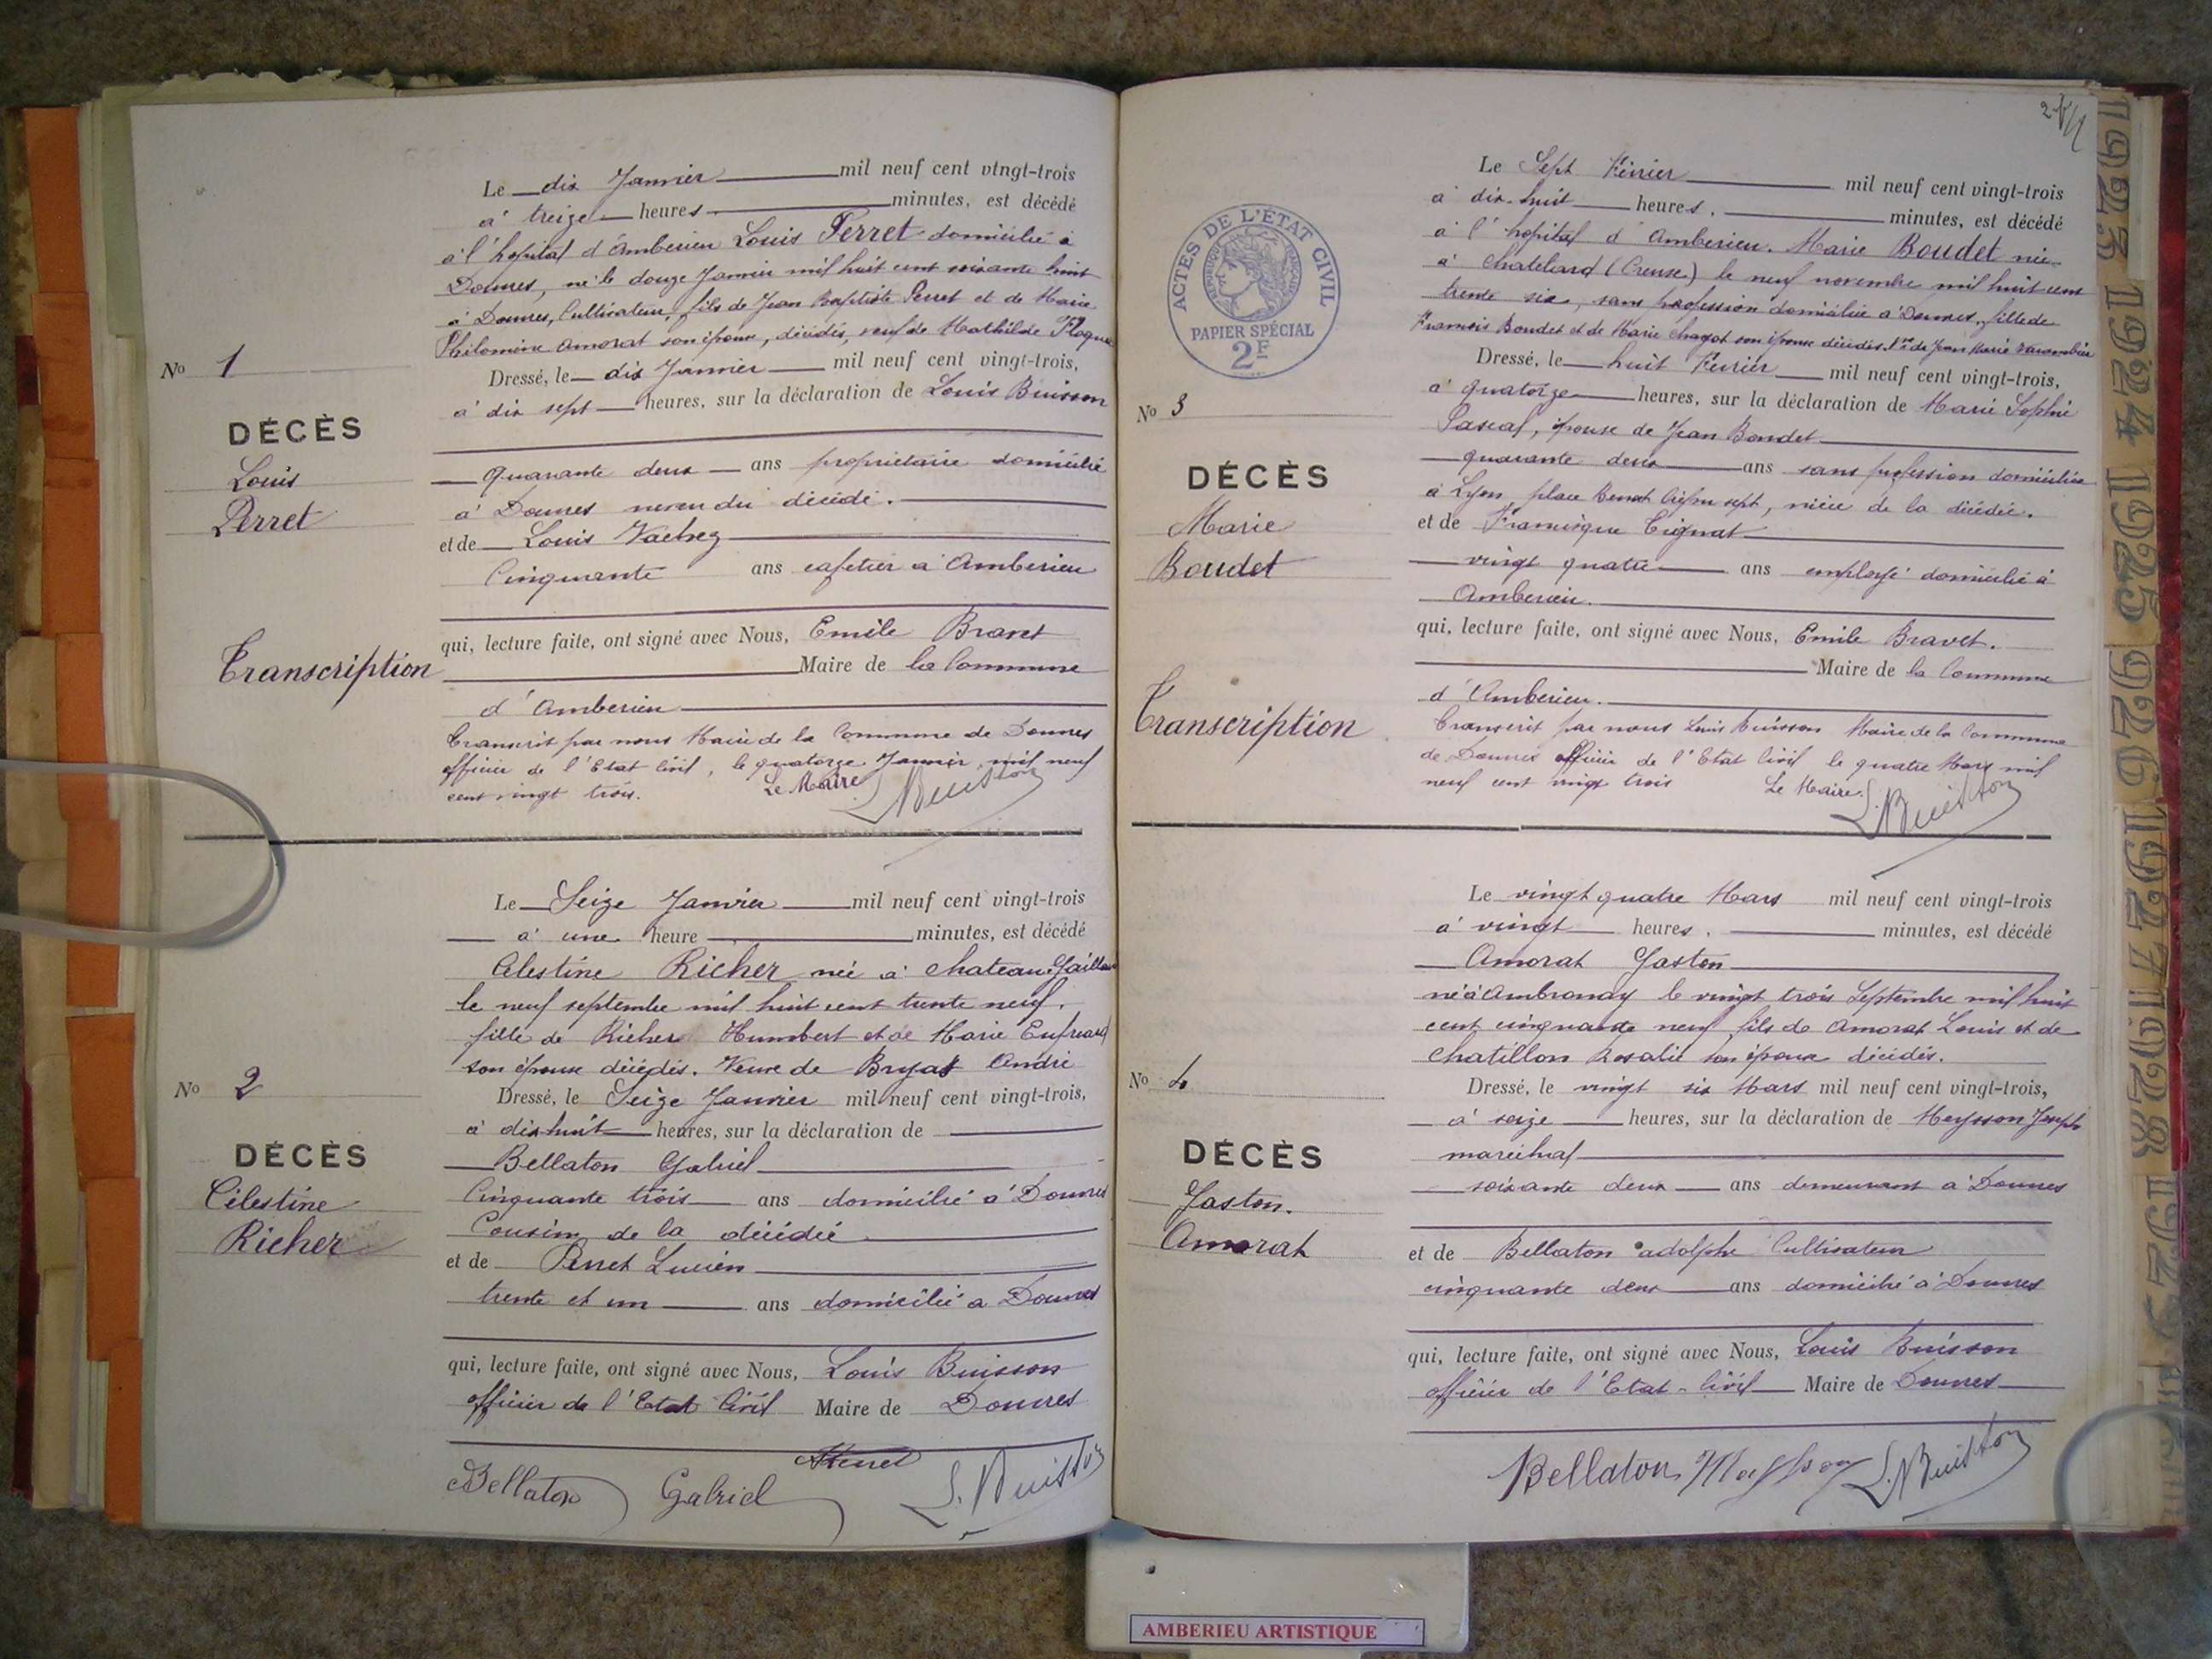 Le dix Janvier mil neuf cent vingt-trois
à treize heures, minutes, est décédé
à l'hôpital d'Amberieu Louis Perret domicilié à
Douvres, né le douze Janvier mil huit cent soixante huit
à Douvres, Cultivateur, fils de Jean Baptiste Perret et de Marie
Philomène Amorat son épouse, décédés, veuf de Mathilde
Dressé, le dix Janvier mil neuf cent vingt-trois,
à dix sept heures, sur la déclaration de Louis Buisson
No 1
DÉCÈS
Louis
Perret
Transcription
quarante deux ans propriétaire domicilié
à Douvres neveu du décédé.
et de Louis Vachez
Cinquante ans cafetier à Amberieu
qui, lecture faite, ont signé avec Nous, Emile Bravet
Maire de la Commune
d'Amberieu
Transcrit par nous Maire de la Commune de Douvres
officier de l'Etat Civil, le quatorze Janvier mil neuf
cent vingt trois. Le Maire
L. Buisson
Le Seize Janvier mil neuf cent vingt-trois
à une heure minutes, est décédé
Célestine Richer née à Chateau Gaillard
le neuf septembre mil huit cent trente neuf.
fille de Richer Humbert et de Marie
son épouse décédés. Veuve de Bryat André
Dressé, le Seize Janvier mil neuf cent vingt-trois,
à dix huit heures, sur la déclaration de
Bellaton Gabriel
Cinquante trois ans domicilié à Douvres
Cousin de la décédée
et de Perret Lucien
trente et un ans domicilié à Douvres
No 2
DÉCÈS
Célestine
Richer
qui, lecture faite, ont signé avec Nous, Louis Buisson
officier de l'Etat Civil Maire de Douvres
Bellaton Gabriel L. Buisson
Le Sept Février mil neuf cent vingt-trois
à dix-huit heures, minutes, est décédé
à l'hôpital d'Amberieu. Marie Boudet née
à Chatelard (Creuse) le neuf novembre mil huit cent
trente six, sans profession domiciliée à Douvres, fille de
François Boudet et de Marie Chagot son épouse décédés. Vve de Jean Marie
Dressé, le huit Février mil neuf cent vingt-trois,
à quatorze heures, sur la déclaration de Marie Sophie
Pascal, épouse de Jean Boudet
quarante deux ans sans profession domiciliée
à Lyon, place Benoit Crépu sept, nièce de la décédée.
et de Francisque Tignat
vingt quatre ans employé domicilié à
Amberieu.
ACTES DE L'ÉTAT CIVIL
RÉPUBLIQUE FRANÇAISE
PAPIER SPÉCIAL
2F
No 3
DÉCÈS
Marie
Boudet
Transcription
qui, lecture faite, ont signé avec Nous, Emile Bravet.
Maire de la Commune
d'Amberieu.
Transcrit par nous Louis Buisson Maire de la Commune
de Douvres officier de l'Etat Civil le quatre Mars mil
neuf cent vingt trois Le Maire.
L. Buisson
Le vingt quatre Mars mil neuf cent vingt-trois
à vingt heures, minutes, est décédé
Amorat Gaston
né à Ambronay le vingt trois Septembre mil huit
cent cinquante neuf fils de Amorat Louis et de
Chatillon Rosalie son épouse décédés.
Dressé, le vingt six Mars mil neuf cent vingt-trois,
à seize heures, sur la déclaration de Meysson Joseph
maréchal
soixante deux ans demeurant à Douvres
et de Bellaton adolphe Cultivateur
cinquante deux ans domicilié à Douvres
No 4
DÉCÈS
Gaston.
Amorat
qui, lecture faite, ont signé avec Nous, Louis Buisson
officier de l'Etat-Civil Maire de Douvres
Bellaton Meysson L. Buisson
1923 1924 1925 1926 1927 1928
AMBERIEU ARTISTIQUE